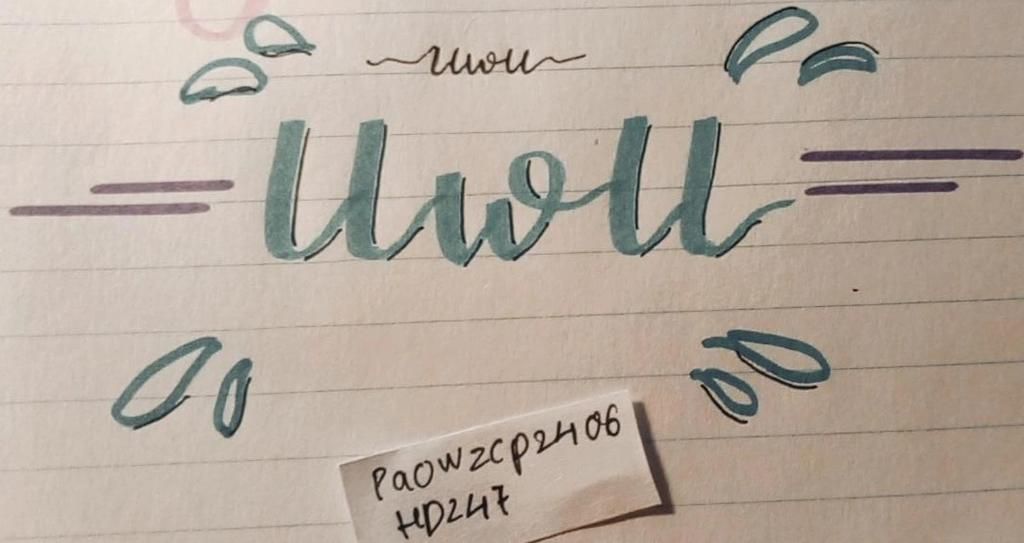 ~uwu~
UwU
PaOWZCP2406
HD247